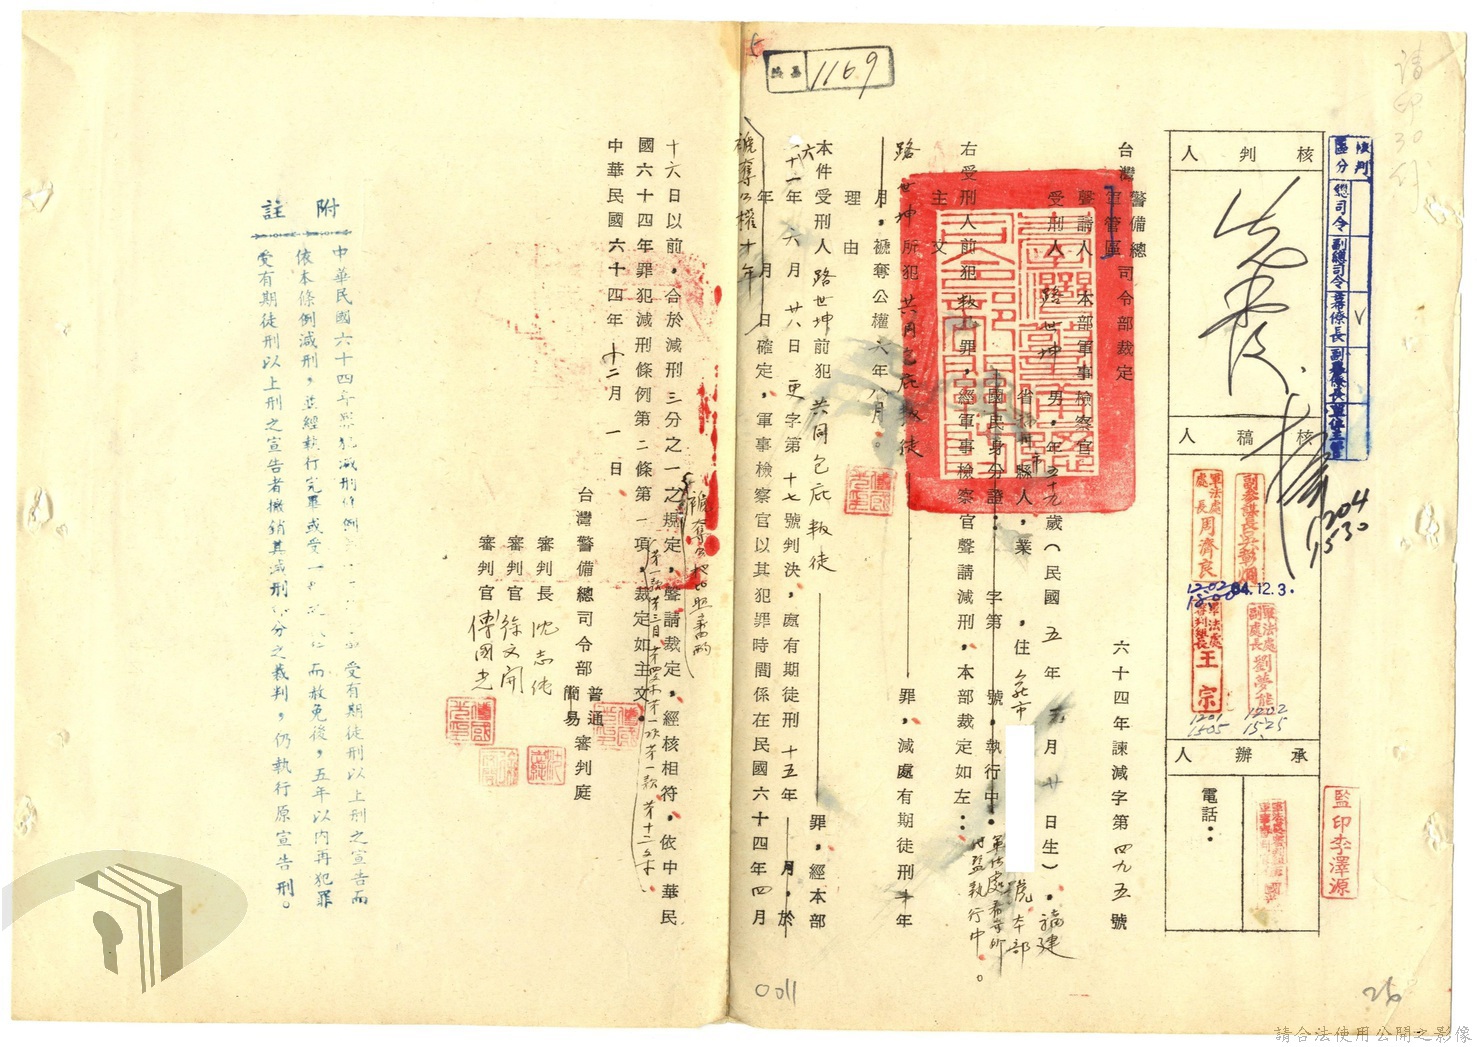 請印30份
核判區分
總司令
副總司令
參謀長
副參謀長
核判人
核稿人
副參謀長
軍法處處長周濟良
1204
1530
1202
1800
64.12.3.
軍法處副處長劉夢熊
1202
1525
軍法處審判組長王宗
1201
1505
承辦人
電話：
監印李澤源
1169
台灣警備總司令部裁定
軍管區
六十四年諫減字第四九五號
聲請人 本部軍事檢察官
受刑人 路世坤 男，年五十九歲（民國五年六月廿日生），福建
省福州市縣人，業 ，住
號 本部
國民身分證： 字第 號，執行中。
右受刑人前犯叛亂罪，經軍事檢察官聲請減刑，本部裁定如左：
主文
路世坤所犯共同包庇叛徒罪，減處有期徒刑十年
月，褫奪公權六年八月。
理由
本件受刑人路世坤前犯共同包庇叛徒罪，經本部
六十一年六月廿八日更字第十七號判決，處有期徒刑十五年 月，於
褫奪公權十年
年 月 日確定，軍事檢察官以其犯罪時間係在民國六十四年四月
十六日以前，合於減刑三分之一之規定，聲請裁定，經核相符，依中華民
國六十四年罪犯減刑條例第二條第一項，裁定如主文。
中華民國六十四年十二月一日
台灣警備總司令部普通審判庭
簡易
審判長 沈志純
審判官 徐文開
審判官 傅國光
附註
中華民國六十四年罪犯減刑條例
受有期徒刑以上刑之宣告而
依本條例減刑，並經執行完畢或受一
而赦免後，五年以內再犯罪
受有期徒刑以上刑之宣告者撤銷其減刑部分之裁判，仍執行原宣告刑。
0011
26
請合法使用公開之影像